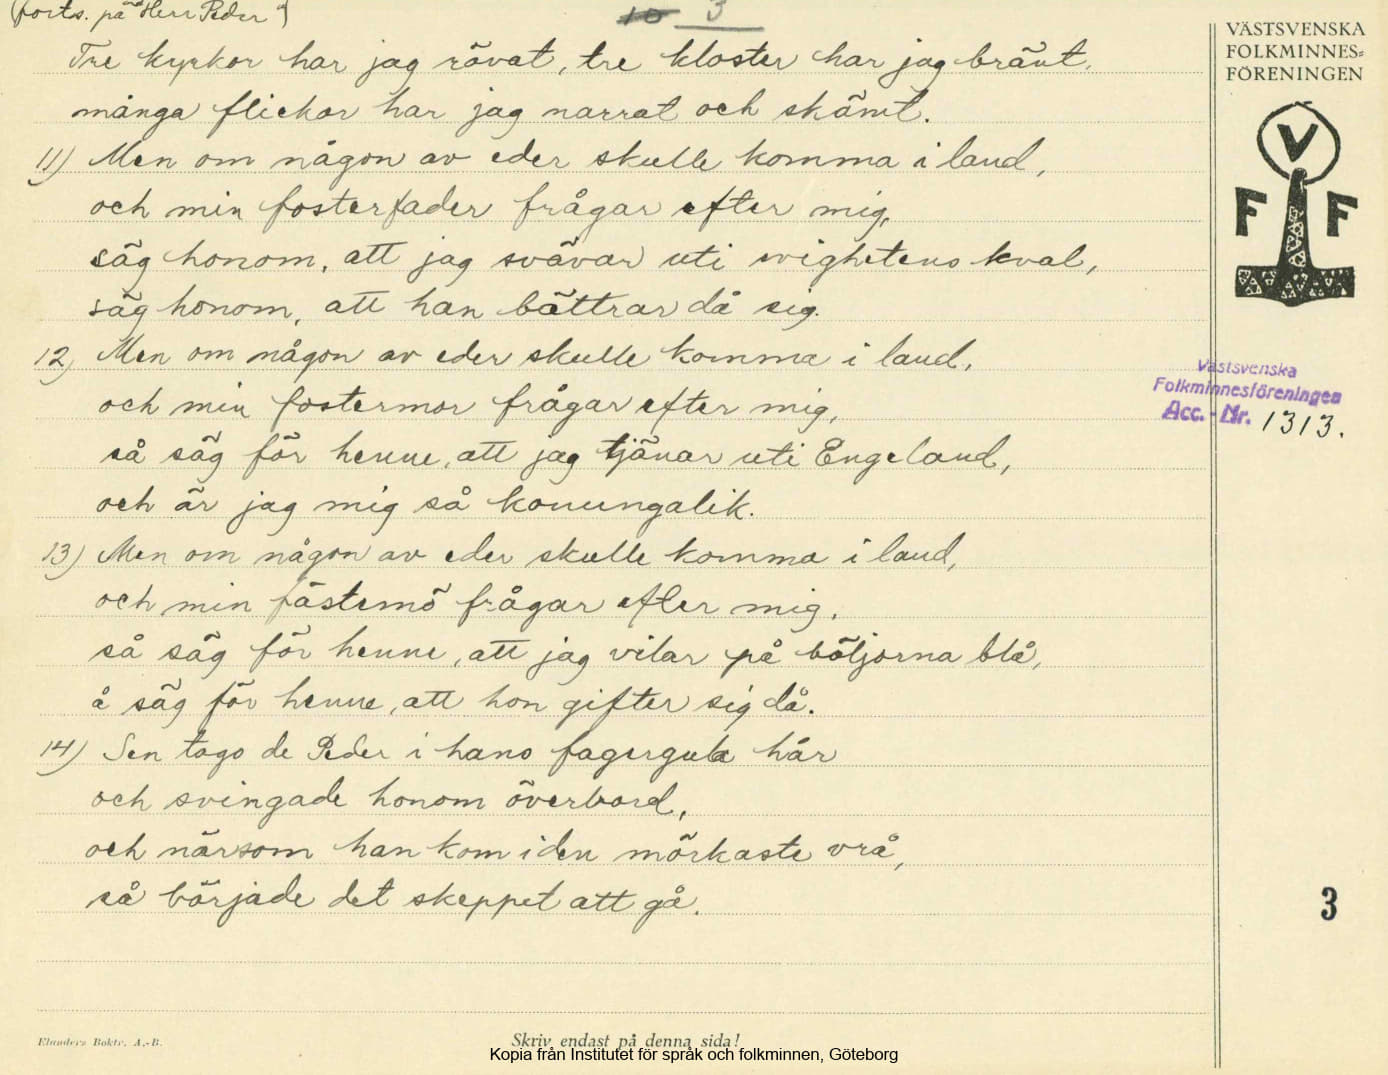 (forts. på "Herr Peder")
10 3
Tre kyrkor har jag rövat, tre kloster har jag bränt,
många flickor har jag narrat och skämt.
11) Men om någon av eder skulle komma i land,
och min fosterfader frågar efter mig,
säg honom, att jag svävar uti evighetens kval,
säg honom, att han bättrar då sig.
12) Men om någon av eder skulle komma i land,
och min fostermor frågar efter mig,
så säg för henne, att jag tjänar uti Engeland,
och är jag mig så konungalik.
13) Men om någon av eder skulle komma i land,
och min fästemö frågar efter mig,
så säg för henne, att jag vilar på böljorna blå,
å säg för henne, att hon gifter sig då.
14) Sen togo de Peder i hans fagergula hår
och svingade honom överbord,
och närsom han kom i den mörkaste vrå,
så började det skeppet att gå.
VÄSTSVENSKA
FOLKMINNES=
FÖRENINGEN
V
F F
Västsvenska
Folkminnesföreningen
Acc. - Nr. 1313.
3
Elanders Boktr. A.-B.
Skriv endast på denna sida!
Kopia från Institutet för språk och folkminnen, Göteborg